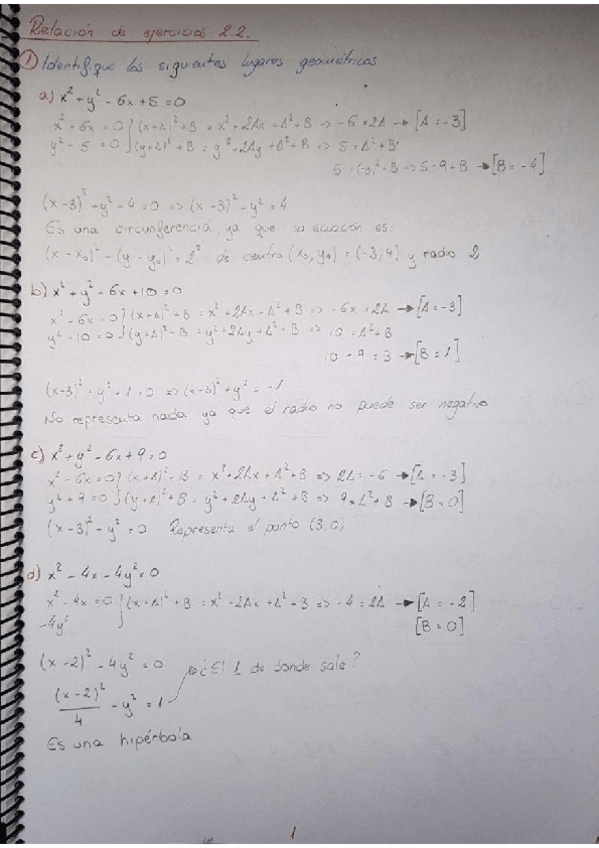 Relación de ejercicios 2.2.
① Identifique los siguientes lugares geométricos
a) x² + y² - 6x + 5 = 0
x² - 6x = 0 } (x+A)² + B = x² + 2Ax + A² + B => -6 = 2A → [A = -3]
y² - 5 = 0 } (y+A)² + B = y² + 2Ay + A² + B => 5 = A² + B
5 = (-3)² + B => 5 = 9 + B → [B = -4]
(x-3)² + y² - 4 = 0 => (x-3)² + y² = 4
Es una circunferencia, ya que su ecuación es:
(x - x₀)² + (y - y₀)² = 2² de centro (x₀, y₀) = (-3, 4) y radio 2
b) x² + y² - 6x + 10 = 0
x² - 6x = 0 } (x+A)² + B = x² + 2Ax + A² + B => -6x = 2A → [A = -3]
y² - 10 = 0 } (y+A)² + B = y² + 2Ay + A² + B => 10 = A² + B
10 - 9 = B → [B = 1]
(x-3)² + y² + 1 = 0 => (x-3)² + y² = -1
No representa nada ya que el radio no puede ser negativo
c) x² + y² - 6x + 9 = 0
x² - 6x = 0 } (x+A)² + B = x² + 2Ax + A² + B => 2A = -6 → [A = -3]
y² + 9 = 0 } (y+A)² + B = y² + 2Ay + A² + B => 9 = A² + B → [B = 0]
(x-3)² + y² = 0 Representa el punto (3, 0)
d) x² - 4x - 4y² = 0
x² - 4x = 0 } (x+A)² + B = x² + 2Ax + A² + B => -4 = 2A → [A = -2]
-4y² [B = 0]
(x-2)² - 4y² = 0 ¿El 1 de donde sale?
(x-2)²/4 - y² = 1
Es una hipérbola
1